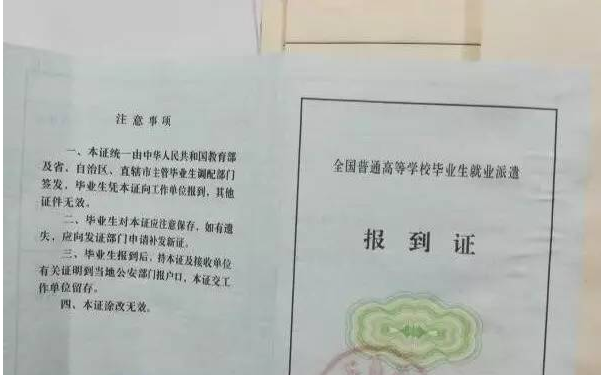 注意事项
一、本证统一由中华人民共和国教育部
及省、自治区、直辖市主管毕业生调配部门
签发，毕业生凭本证向工作单位报到，其他
证件无效。
二、毕业生对本证应注意保存，如有遗
失，应向发证部门申请补发新证。
三、毕业生报到后，持本证及接收单位
有关证明到当地公安部门报户口，本证交工
作单位留存。
四、本证涂改无效。
全国普通高等学校毕业生就业派遣
报到证